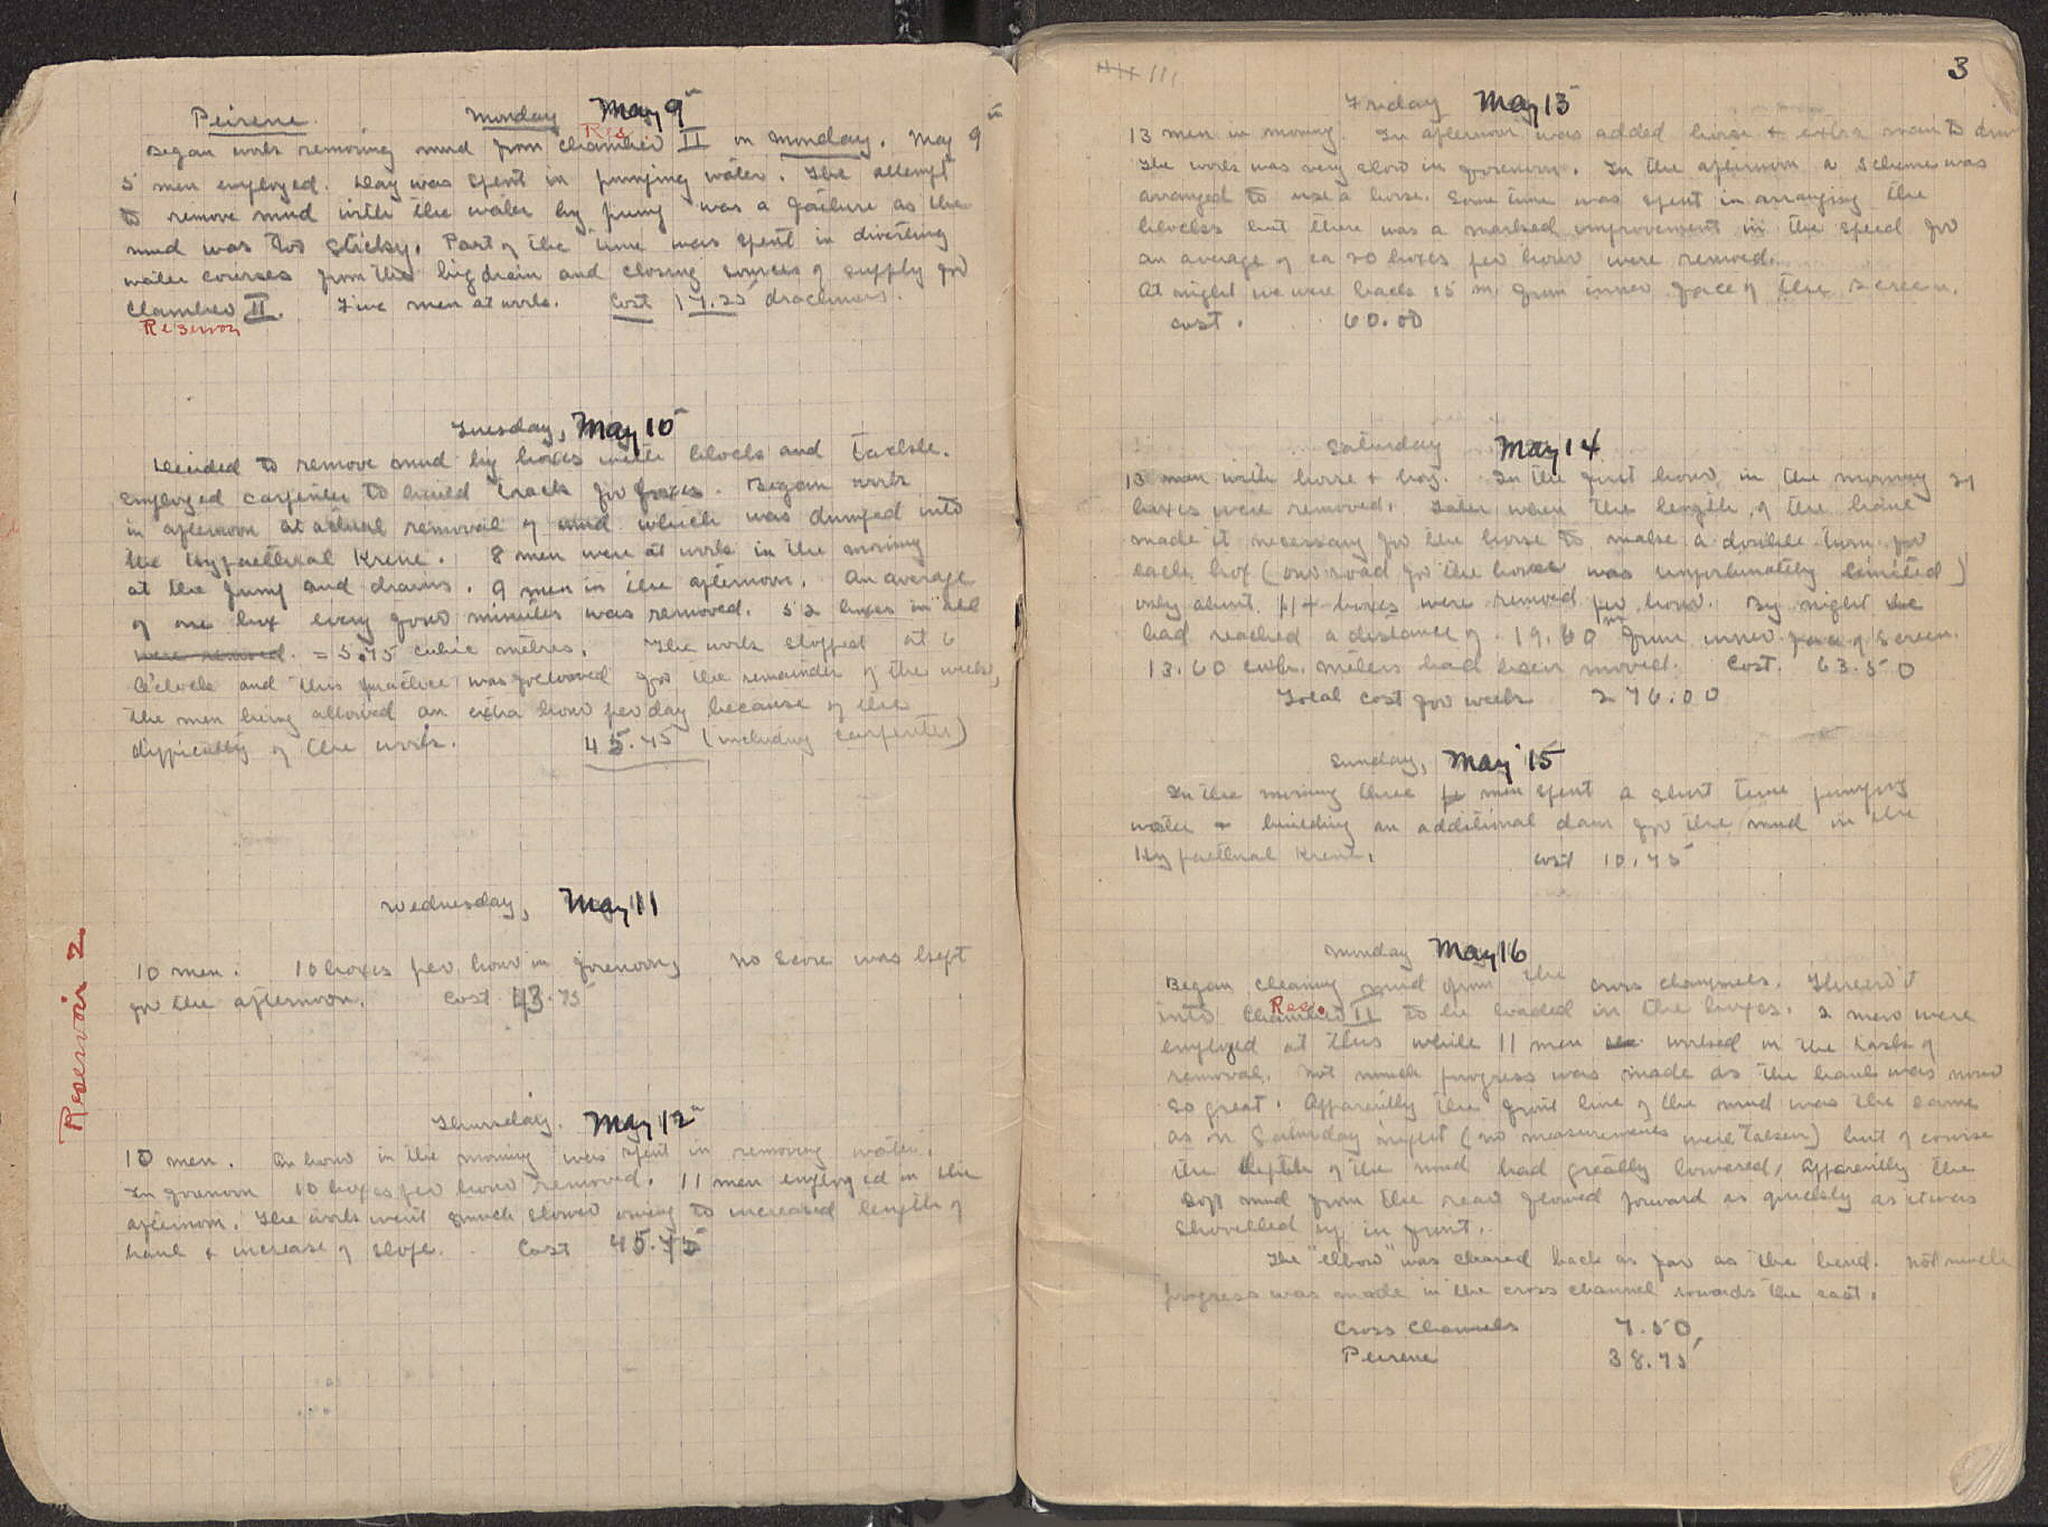 Peirene. Monday May 9th
Began work removing mud from chamber II on Monday. May 9th
Res
5 men employed. Day was spent in pumping water. The attempt
to remove mud with the water by pump was a failure as the
mud was too sticky. Part of the time was spent in diverting
water courses from the big drain and closing sources of supply for
Chamber II. Five men at work. Cost 17.25 drachmas.
Reservoir
Tuesday, May 10
Decided to remove mud by boxes with blocks and tackle.
Employed carpenter to build track for boxes. Began work
in afternoon at actual removal of mud which was dumped into
the Hypaethral Krene. 8 men were at work in the morning
at the pump and drains. 9 men in the afternoon. An average
of one box every four minutes was removed. 52 boxes in all
were removed. = 5.75 cubic mètres. The work stopped at 6
o'clock and this practice was followed for the remainder of the week,
the men being allowed an extra hour per day because of the
difficulty of the work. 45.75 (including carpenter)
Wednesday, May 11
10 men. 10 boxes per hour in forenoon, no score was kept
for the afternoon. Cost 43.75
Reservoir 2
Thursday. May 12th
10 men. An hour in the morning was spent in removing water.
In forenoon 10 boxes per hour removed. 11 men employed in the
afternoon. The work went much slower owing to increased length of
haul & increase of slope. Cost 45.75
3
Friday May 13
13 men in morning. In afternoon was added horse & extra man to drive
The work was very slow in forenoon. In the afternoon a scheme was
arranged to use a horse. Some time was spent in arranging the
blocks but there was a marked improvement in the speed for
an average of ca 20 boxes per hour were removed.
At night we were back 15 m from inner face of the screen.
Cost. 60.00
Saturday May 14
13 men with horse & boy. In the first hour in the morning 21
boxes were removed. Later when the length of the haul
made it necessary for the horse to make a double turn for
each box (our road for the horse was unfortunately limited)
only about 14 boxes were removed per hour. By night we
had reached a distance of 19.60 m from inner face of screen.
13.60 cub. meters had been moved. Cost. 63.50
Total cost for week 276.00
Sunday, May 15
In the morning three men spent a short time pumping
water & building an additional dam for the mud in the
Hypaethral Krene. Cost 10.75
Monday May 16
Began cleaning mud from the cross channels. Threw it
Res.
into Chamber II to be loaded in the boxes. 2 men were
employed at this while 11 men worked in the task of
removal. Not much progress was made as the haul was now
so great. Apparently the front line of the mud was the same
as on Saturday night (no measurements were taken) but of course
the depth of the mud had greatly lowered, apparently the
soft mud from the rear flowed forward as quickly as it was
shovelled up in front.
The "elbow" was cleared back as far as the bend. Not much
progress was made in the cross channel towards the east.
Cross Channels 7.50
Peirene 38.75